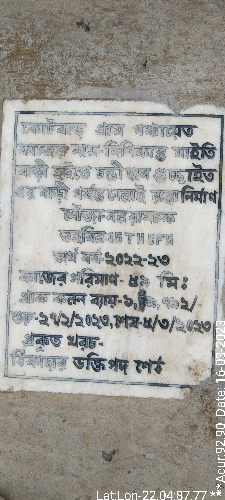 কোটবাড় গ্রাম পঞ্চায়েত
কাজের নাম-বিপিনকান্ত মাইতি
বাড়ী হইতে চন্ডী দাস গুচ্ছাইত
এর বাড়ী পর্যন্ত ঢালাই রাস্তা নির্মাণ
মৌজা-
তহবিল 15 TH CFC
অর্থ বর্ষ-২০২২-২৩
কাজের পরিমাণ- মিঃ
প্রাক কলন ব্যয়-
শুরু-২৭/২/২০২৩, শেষ-৮/৩/২০২৩
প্রকৃত খরচ-
ঠিকাদার ভক্তিপদ শেঠ
Lat:Lon-22.04:87.77
***Acur:92.90 Date: 16-03-2023